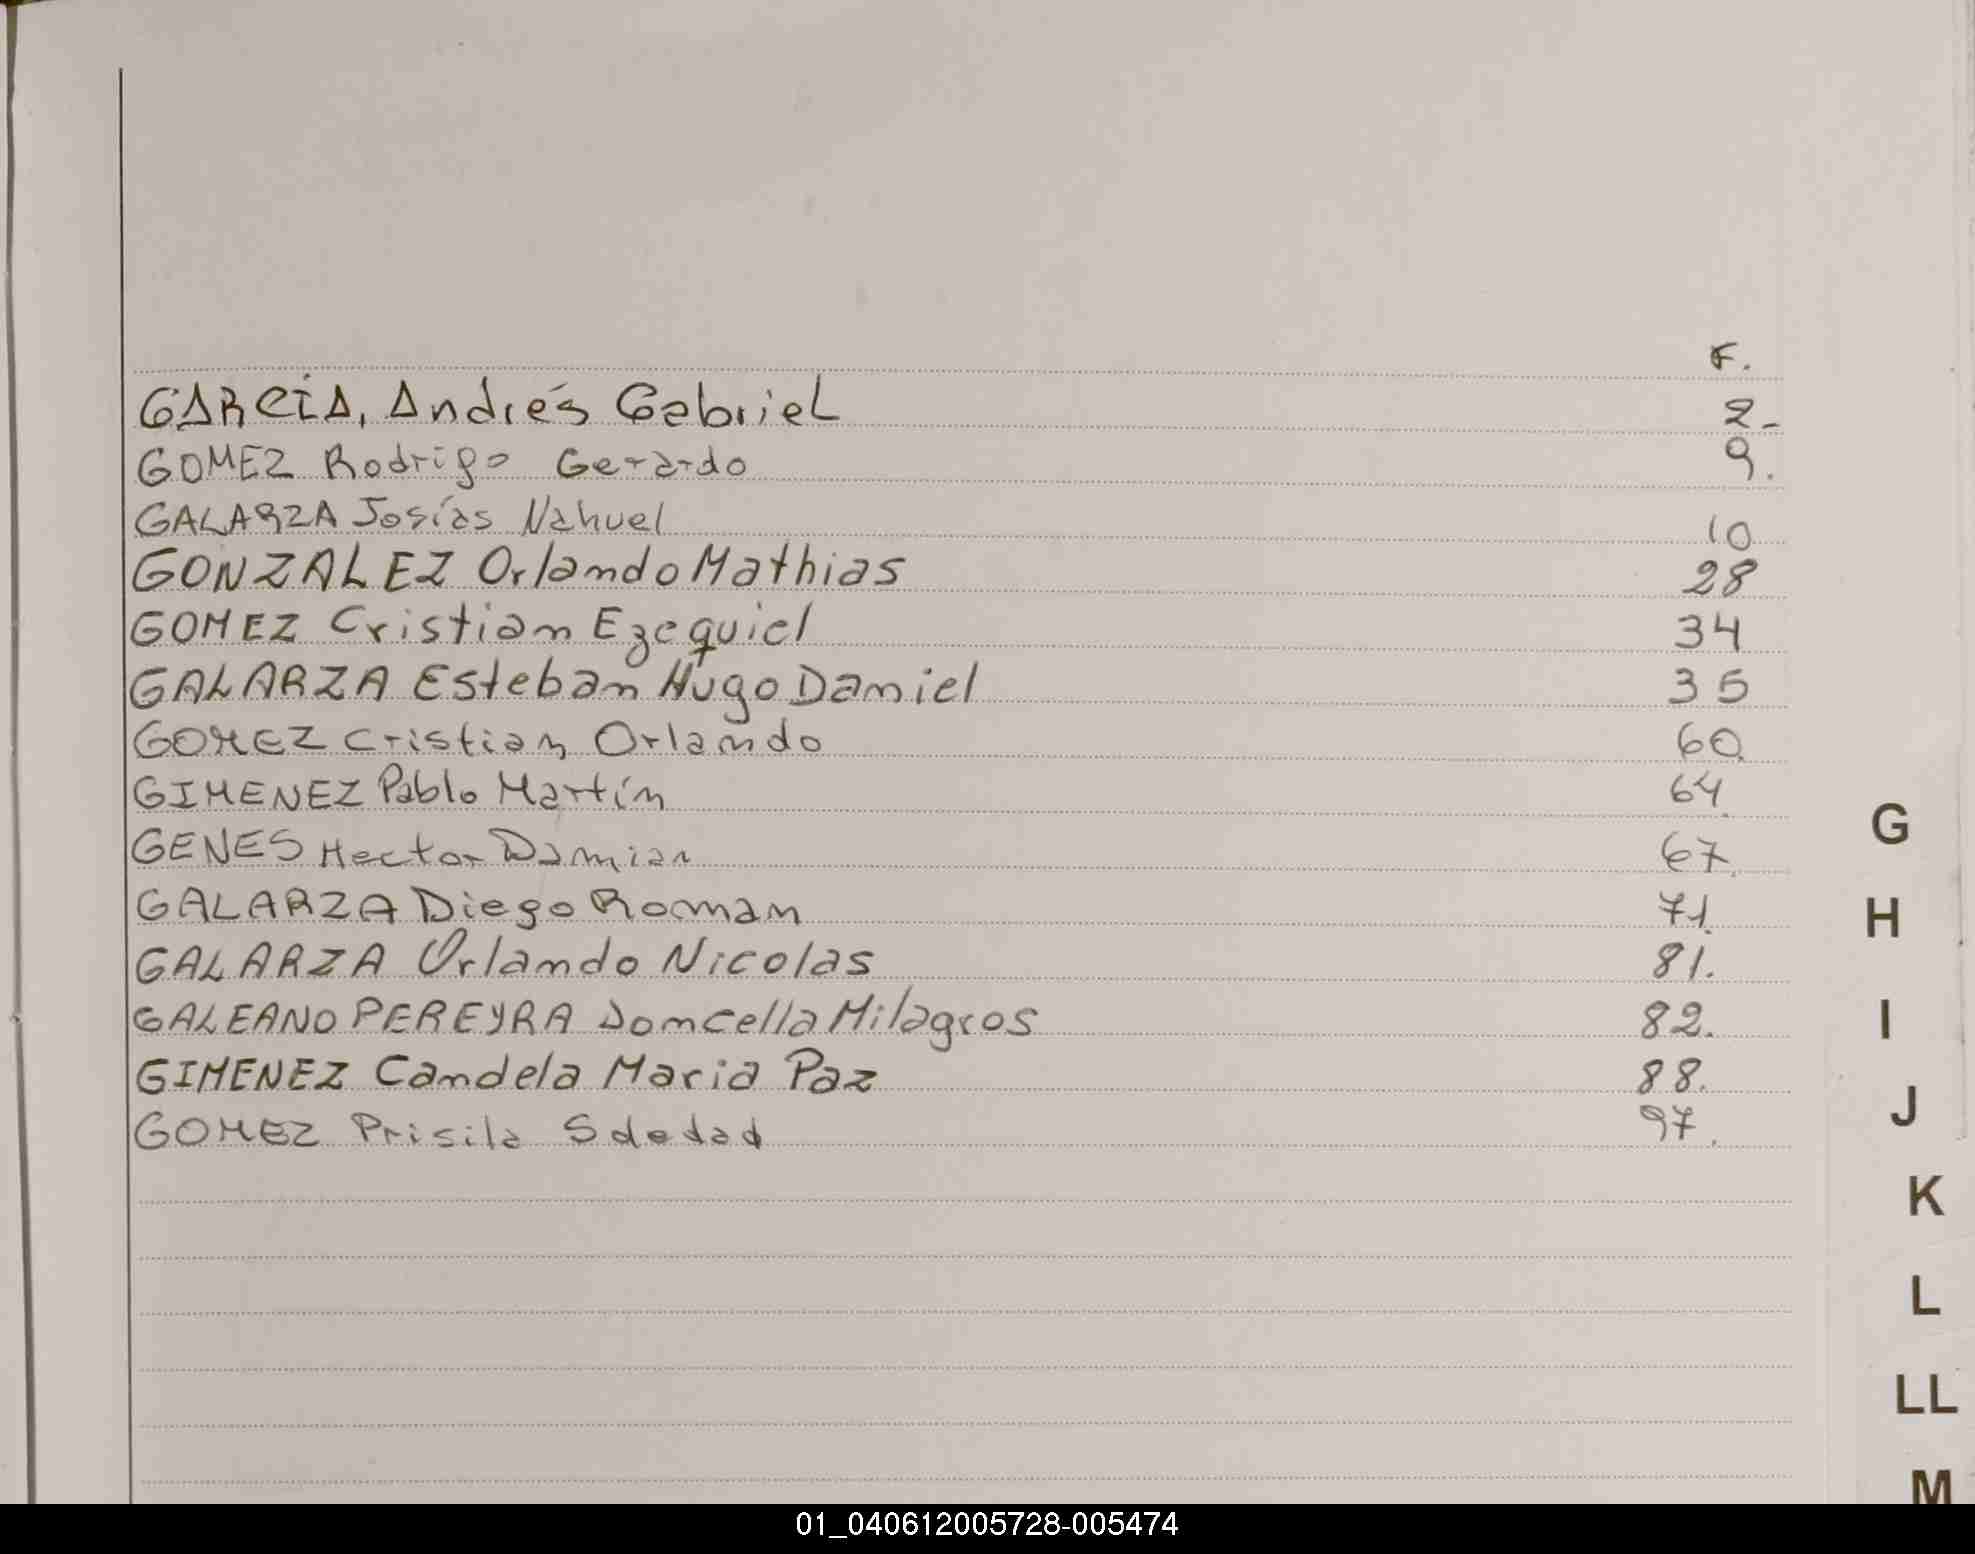 F.
GARCIA, Andrés Gabriel 2-
GOMEZ Rodrigo Gerardo 9.
GALARZA Josías Nahuel 10
GONZALEZ Orlando Mathias 28
GOMEZ Cristian Ezequiel 34
GALARZA Esteban Hugo Daniel 35
GOMEZ Cristian Orlando 60.
GIMENEZ Pablo Martín 64.
GENES Hector Damian 67.
GALARZA Diego Roman 71.
GALARZA Orlando Nicolas 81.
GALEANO PEREYRA Doncella Milagros 82.
GIMENEZ Candela Maria Paz 88.
GOMEZ Prisila Soledad 97.
G
H
I
J
K
L
LL
M
01_040612005728-005474